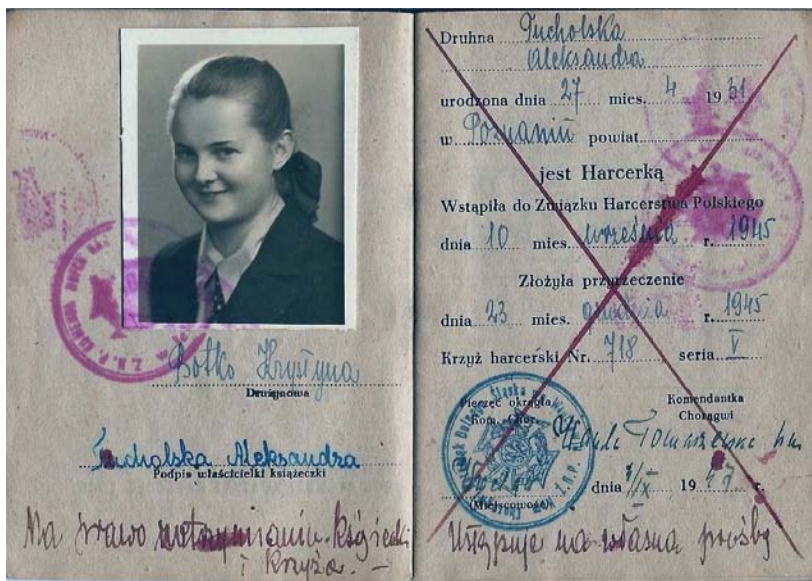 Botko Krystyna
Drużynowa
Tucholska Aleksandra
Podpis właścicielki książeczki
Ma prawo
i Krzyża. —
Druhna Tucholska
Aleksandra
urodzona dnia 27 mies. 4 1931
w Poznaniu powiat
jest Harcerką
Wstąpiła do Związku Harcerstwa Polskiego
dnia 10 mies. września r. 1945
Złożyła przyrzeczenie
dnia 23 mies. grudnia r. 1945
Krzyż harcerski Nr. 718 seria V
Pieczęć okrągła
Kom. Chor.
Komendantka
Chorągwi
(Miejscowość)
dnia IX 1947 r.
Ustępuje na własną prośbę